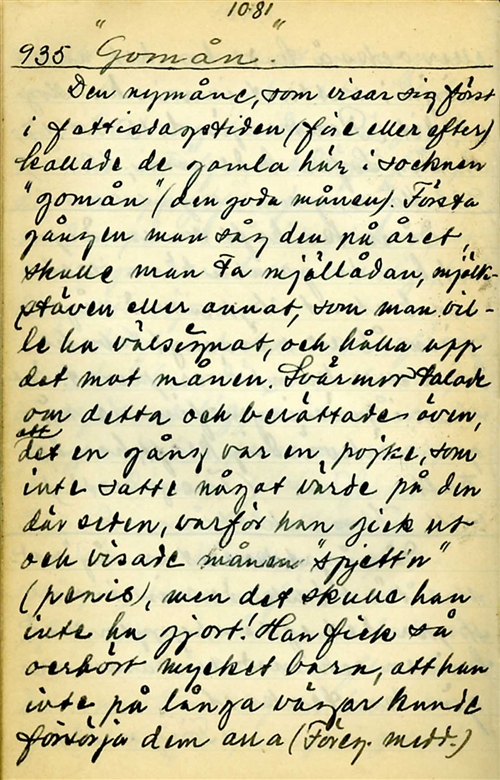 1081
935 "Gomån."
Den nymåne, som visar sig först
i fattisdagstiden (före eller efter)
kallade de gamla här i socknen
"gomån" (den goda månen). Första
gången man såg den på året,
skulle man ta mjöllådan, mjölk-
stäven eller annat, som man vil-
le ha välsignat, och hålla upp
det mot månen. Svärmor talade
om detta och berättade även,
att
det en gång var en pojke, som
inte satte något värde på den
där seden, varför han gick ut
och visade månen "spjett'n"
(penis), men det skulle han
inte ha gjort! Han fick så
oerhört mycket barn, att han
inte på långa vägar kunde
försörja dem alla (Föreg. medd.)